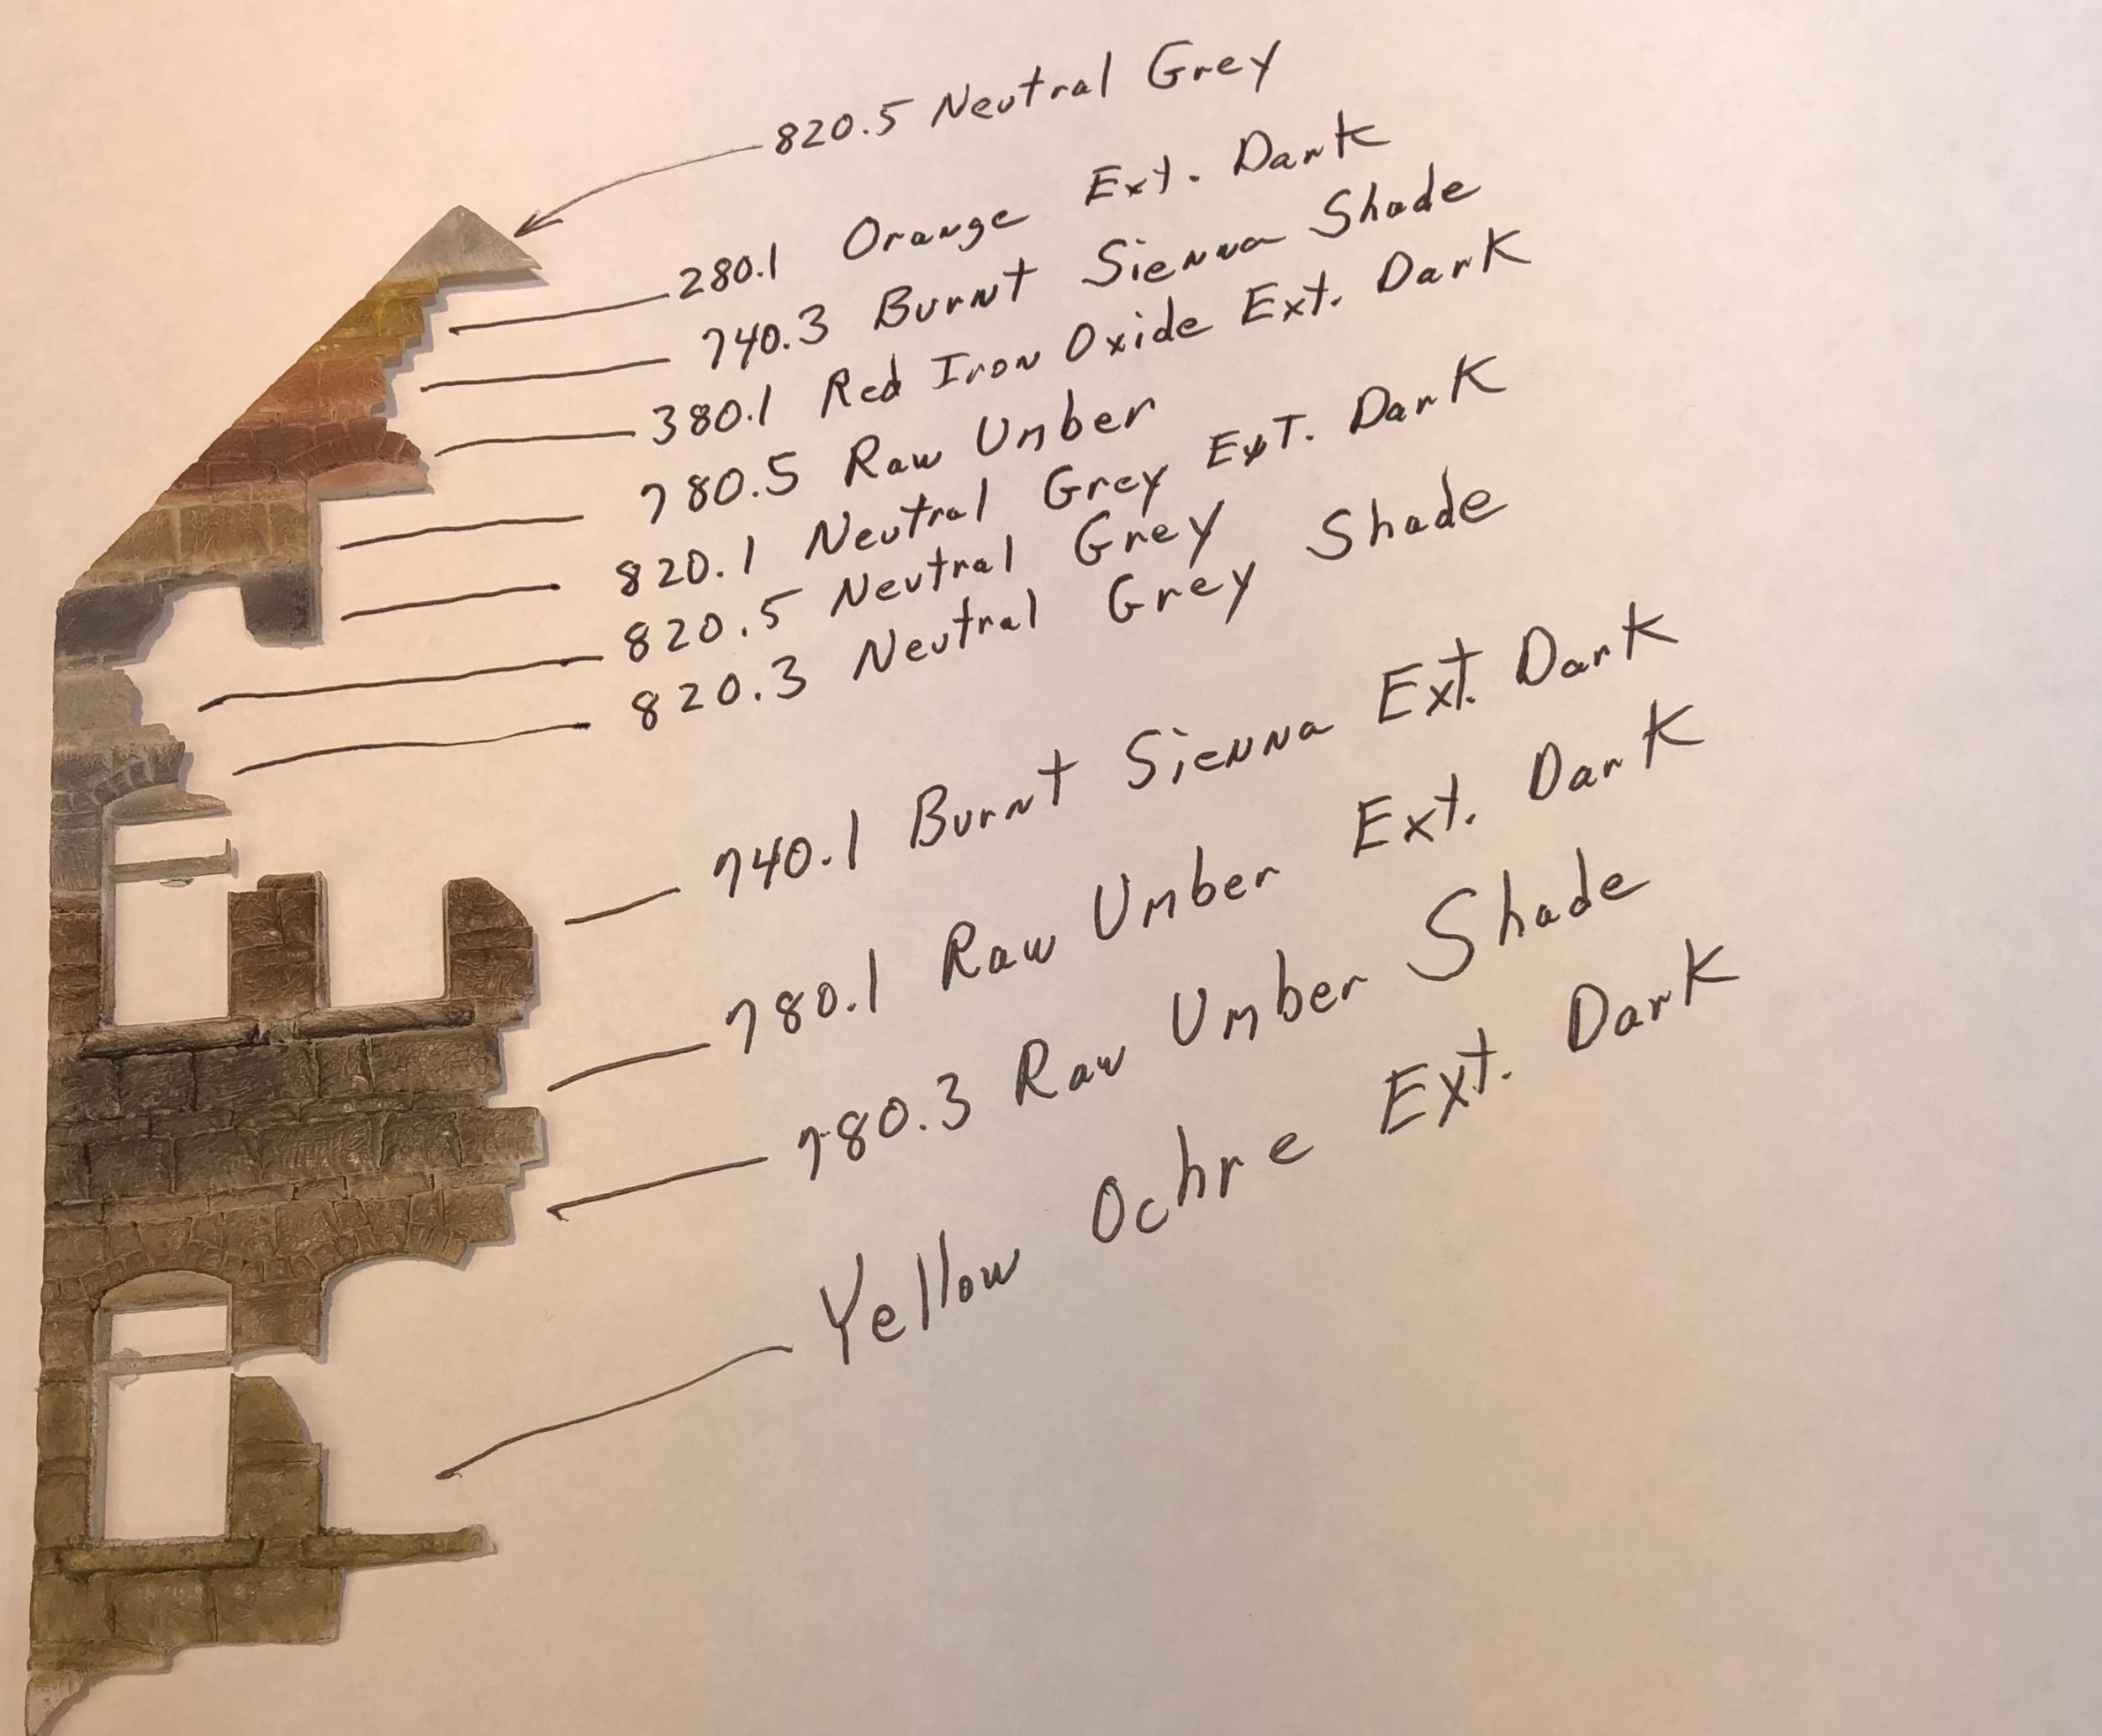 820.5 Neutral Grey
280.1 Orange Ext. Dark
740.3 Burnt Sienna Shade
380.1 Red Iron Oxide Ext. Dark
780.5 Raw Umber
820.1 Neutral Grey Ext. Dark
820.5 Neutral Grey
820.3 Neutral Grey Shade
740.1 Burnt Sienna Ext. Dark
780.1 Raw Umber Ext. Dark
780.3 Raw Umber Shade
Yellow Ochre Ext. Dark